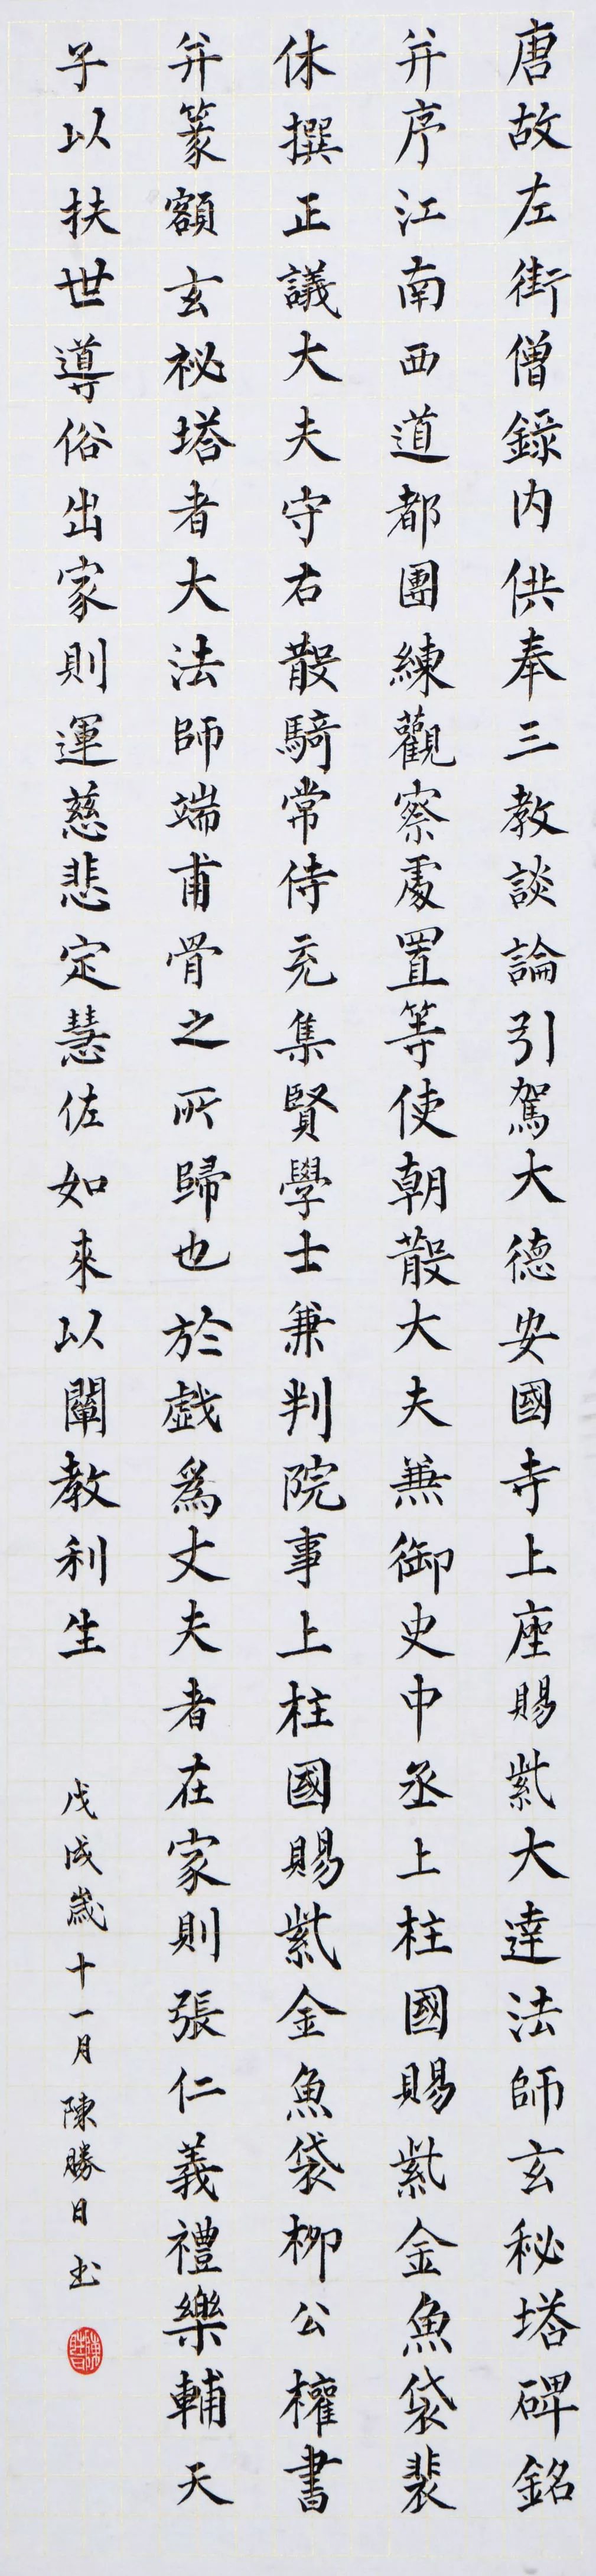 唐故左街僧錄內供奉三教談論引駕大德安國寺上座賜紫大達法師玄秘塔碑銘
并序江南西道都團練觀察處置等使朝散大夫兼御史中丞上柱國賜紫金魚袋裴
休撰正議大夫守右散騎常侍充集賢學士兼判院事上柱國賜紫金魚袋柳公權書
并篆額玄祕塔者大法師端甫骨之所歸也於戲為丈夫者在家則張仁義禮樂輔天
子以扶世導俗出家則運慈悲定慧佐如來以闡教利生
戊戌歲十一月陳勝日书